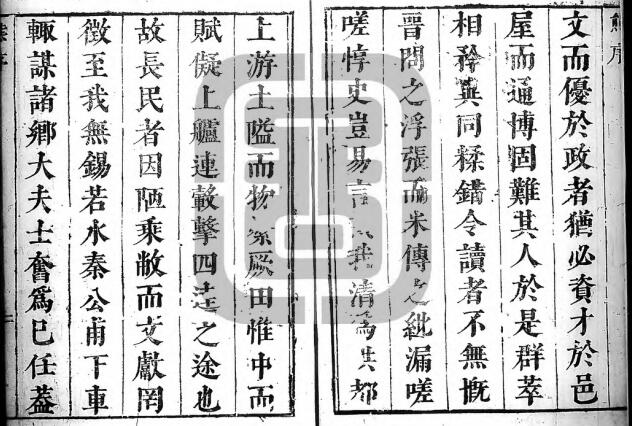 文而優於政者猶必資才於邑
屋而通博固難其人於是群萃
相矜異同糅錯令讀者不無慨
晉問之浮張而米傳之紕漏嗟
嗟惇史豈易言我清為其都
上游土隘而物厥田惟中而
賦儗上艫連轂擊四達之途也
故長民者因陋乘敝而文獻罔
徵至我無錫若水秦公甫下車
輙謀諸鄉大夫士奮爲已任葢